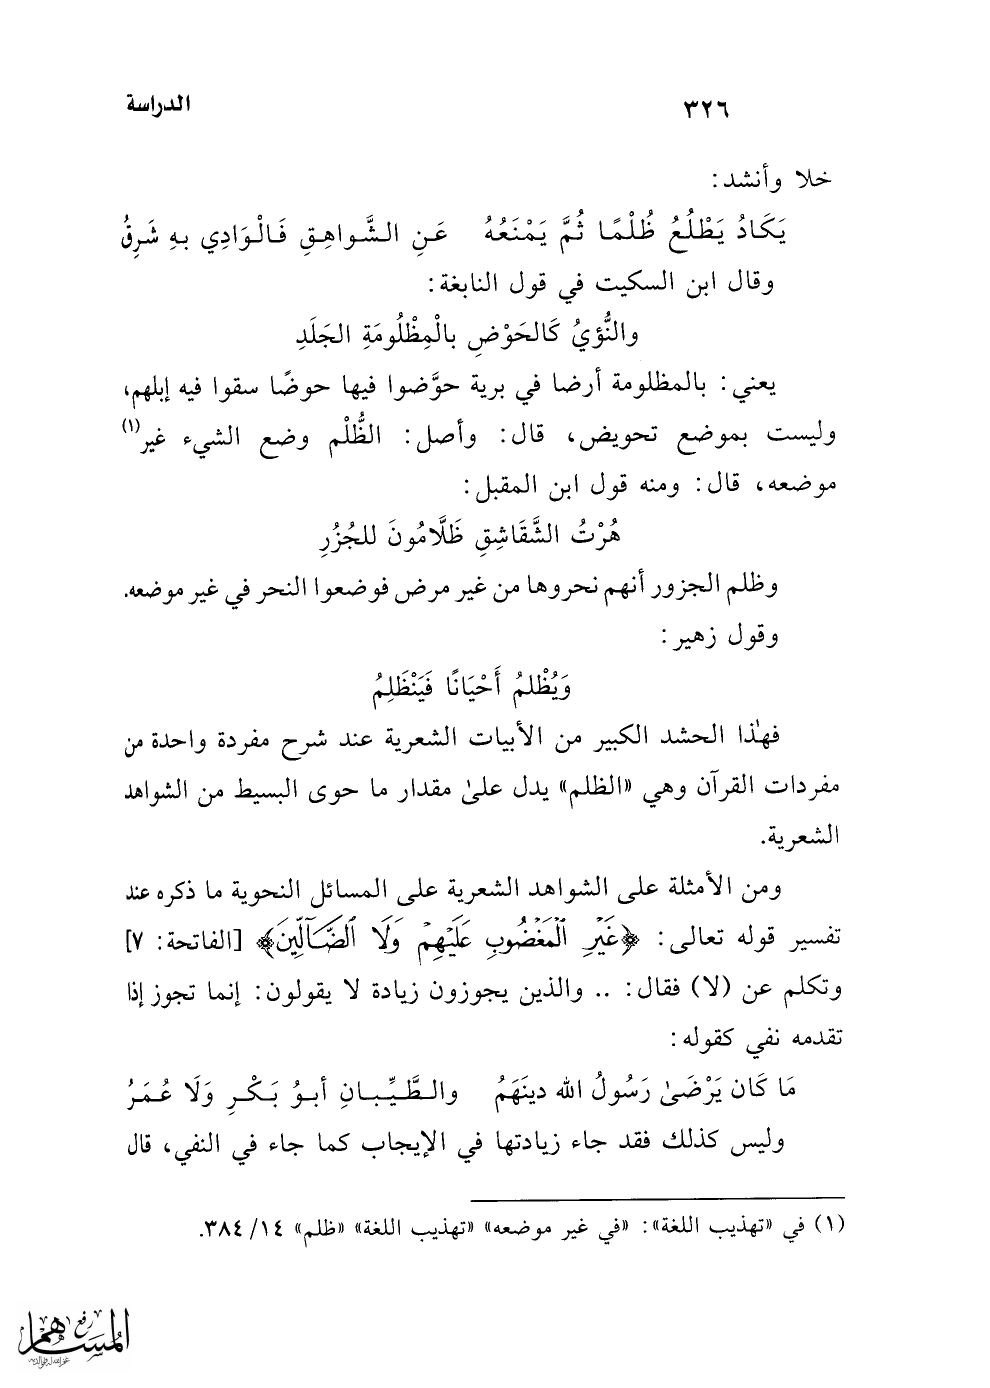 ٣٢٦ الدراسة
خلا وأنشد:
يَكَادُ يَطْلُعُ ظُلْمًا ثُمَّ يَمْنَعُهُ عَنِ الشَّواهِقِ فَالْوَادِي بهِ شَرِقُ
وقال ابن السكيت في قول النابغة:
والنُّؤيُ كَالحَوْضِ بالْمِظْلُومَةِ الجَلَدِ
يعني: بالمظلومة أرضا في برية حوَّضوا فيها حوضًا سقوا فيه إبلهم،
وليست بموضع تحويض، قال: وأصل: الظُّلْم وضع الشيء غير(١)
موضعه، قال: ومنه قول ابن المقبل:
هُرْتُ الشَّقَاشِقِ ظَلَّامُونَ للجُزُرِ
وظلم الجزور أنهم نحروها من غير مرض فوضعوا النحر في غير موضعه.
وقول زهير:
وَيُظْلمُ أَحْيَانًا فَيَنْظَلِمُ
فهٰذا الحشد الكبير من الأبيات الشعرية عند شرح مفردة واحدة من
مفردات القرآن وهي «الظلم» يدل علىٰ مقدار ما حوى البسيط من الشواهد
الشعرية.
ومن الأمثلة على الشواهد الشعرية على المسائل النحوية ما ذكره عند
تفسير قوله تعالى: ﴿غَيْرِ ٱلْمَغْضُوبِ عَلَيْهِمْ وَلَا ٱلضَّآلِّينَ﴾ [الفاتحة: ٧]
وتكلم عن (لا) فقال: .. والذين يجوزون زيادة لا يقولون: إنما تجوز إذا
تقدمه نفي كقوله:
مَا كَان يَرْضَىٰ رَسُولُ الله دينَهَمُ والـطَّـيِّـبـانِ أبـوُ بَـكْـرِ وَلَا عُـمَـرُ
وليس كذلك فقد جاء زيادتها في الإيجاب كما جاء في النفي، قال
(١) في «تهذيب اللغة»: «في غير موضعه» «تهذيب اللغة» «ظلم» ١٤/ ٣٨٤.